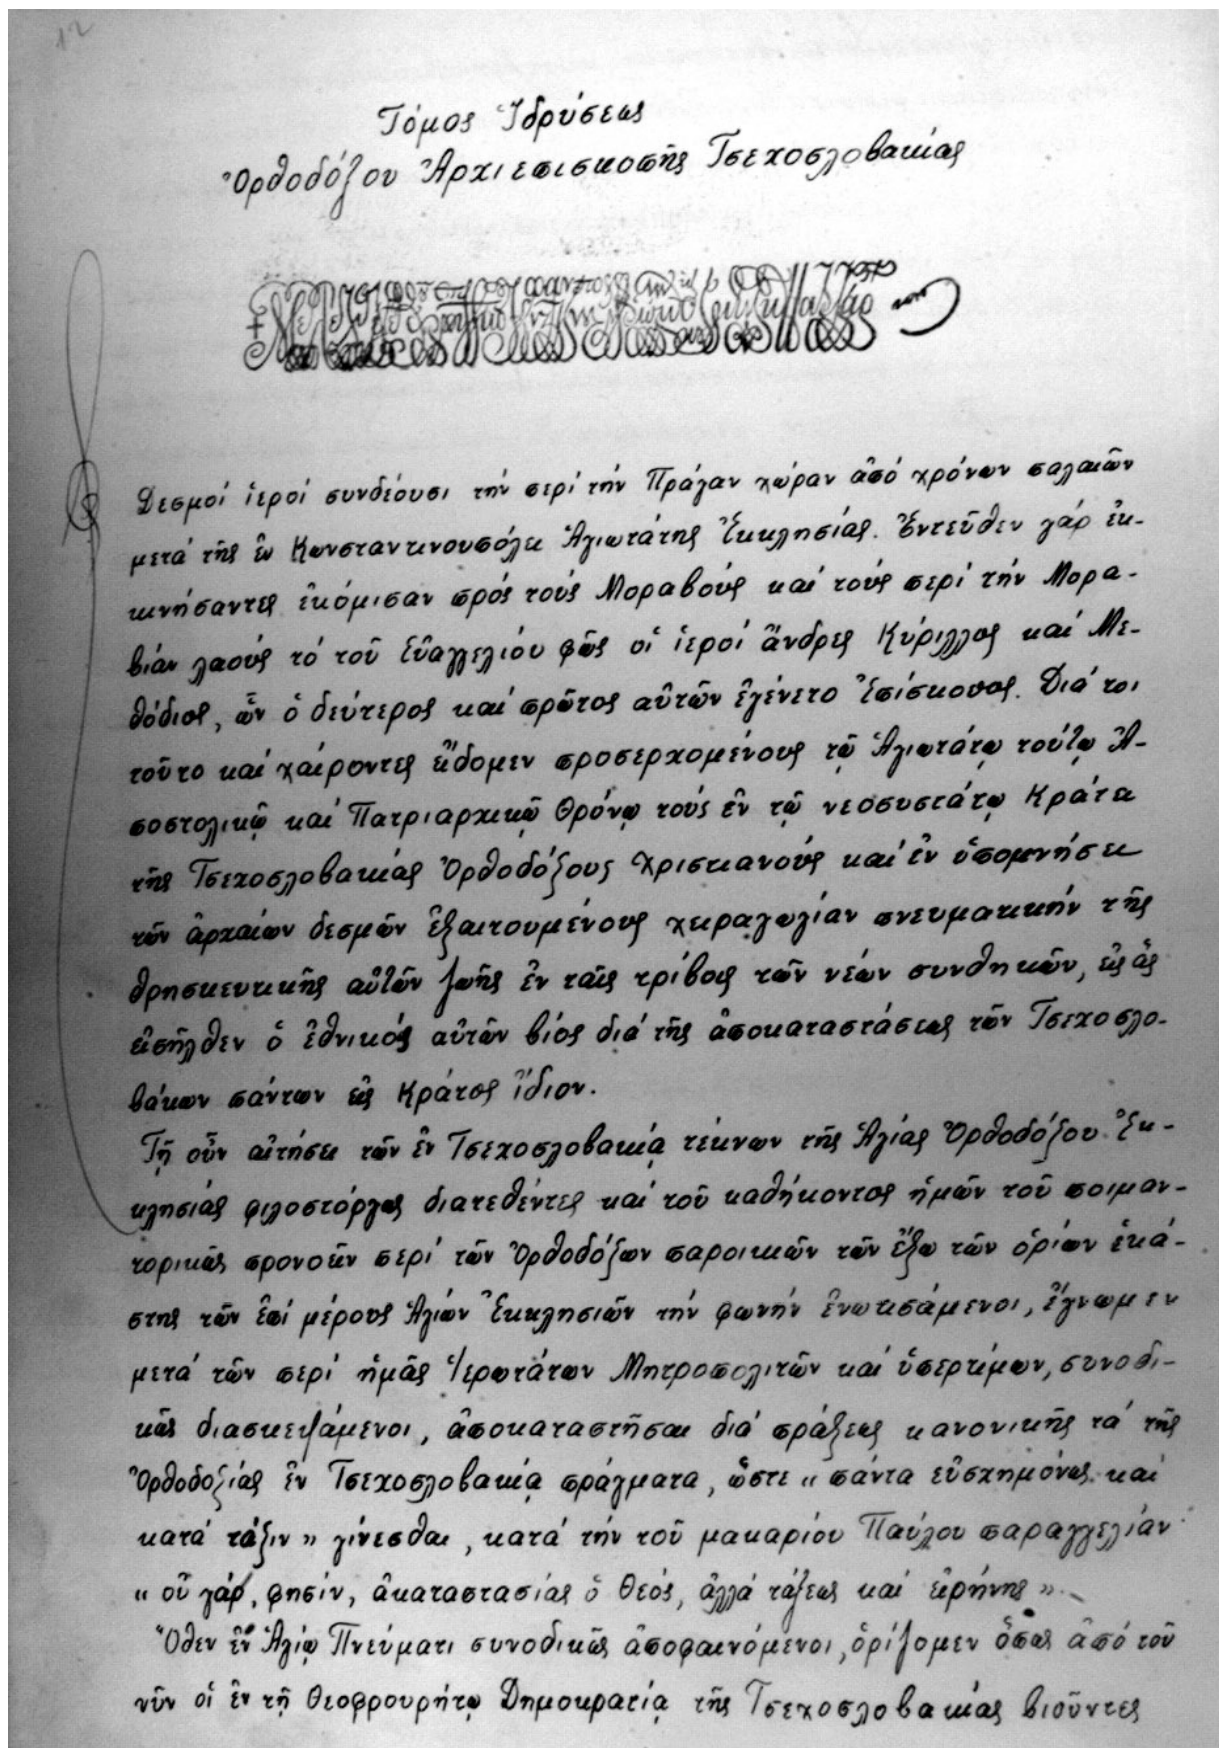 12
Τόμος Ἱδρύσεως
Ὀρθοδόξου Ἀρχιεπισκοπῆς Τσεχοσλοβακίας
Δεσμοί ἱεροί συνδέουσι τήν περί τήν Πράγαν χώραν ἀπό χρόνων παλαιῶν
μετά τῆς ἐν Κωνσταντινουπόλει Ἁγιωτάτης Ἐκκλησίας. Ἐντεῦθεν γάρ ἐκ-
κινήσαντες ἐκόμισαν πρός τούς Μοραβούς καί τούς περί τήν Μορα-
βίαν λαούς τό τοῦ Εὐαγγελίου φῶς οἱ ἱεροί ἄνδρες Κύριλλος καί Με-
θόδιος, ὧν ὁ δεύτερος καί πρῶτος αὐτῶν ἐγένετο Ἐπίσκοπος. Διά τοι
τοῦτο καί χαίροντες εἴδομεν προσερχομένους τῷ Ἁγιωτάτῳ τούτῳ Ἀ-
ποστολικῷ καί Πατριαρχικῷ Θρόνῳ τούς ἐν τῷ νεοσυστάτῳ Κράτει
τῆς Τσεχοσλοβακίας Ὀρθοδόξους Χριστιανούς καί ἐν ὑπομνήσει
τῶν ἀρχαίων δεσμῶν ἐξαιτουμένους χειραγωγίαν πνευματικήν τῆς
θρησκευτικῆς αὐτῶν ζωῆς ἐν ταῖς τρίβοις τῶν νέων συνθηκῶν, εἰς ἅς
εἰσῆλθεν ὁ ἐθνικός αὐτῶν βίος διά τῆς ἀποκαταστάσεως τῶν Τσεχοσλο-
βάκων πάντων εἰς Κράτος ἴδιον.
Τῇ οὖν αἰτήσει τῶν ἐν Τσεχοσλοβακίᾳ τέκνων τῆς Ἁγίας Ὀρθοδόξου Ἐκ-
κλησίας φιλοστόργως διατεθέντες καί τοῦ καθήκοντος ἡμῶν τοῦ ποιμαν-
τορικῶς προνοεῖν περί τῶν Ὀρθοδόξων παροικιῶν τῶν ἔξω τῶν ὁρίων ἑκά-
στης τῶν ἐπί μέρους Ἁγίων Ἐκκλησιῶν τήν φωνήν ἐνωτισάμενοι, ἔγνωμεν
μετά τῶν περί ἡμᾶς Ἱερωτάτων Μητροπολιτῶν καί ὑπερτίμων, συνοδι-
κῶς διασκεψάμενοι, ἀποκαταστῆσαι διά πράξεως κανονικῆς τά τῆς
Ὀρθοδοξίας ἐν Τσεχοσλοβακίᾳ πράγματα, ὥστε « πάντα εὐσχημόνως καί
κατά τάξιν » γίνεσθαι, κατά τήν τοῦ μακαρίου Παύλου παραγγελίαν
« οὐ γάρ, φησίν, ἀκαταστασίας ὁ Θεός, ἀλλά τάξεως καί εἰρήνης ».
Ὅθεν ἐν Ἁγίῳ Πνεύματι συνοδικῶς ἀποφαινόμενοι, ὁρίζομεν ὅπως ἀπό τοῦ
νῦν οἱ ἐν τῇ Θεοφρουρήτῳ Δημοκρατίᾳ τῆς Τσεχοσλοβακίας βιοῦντες